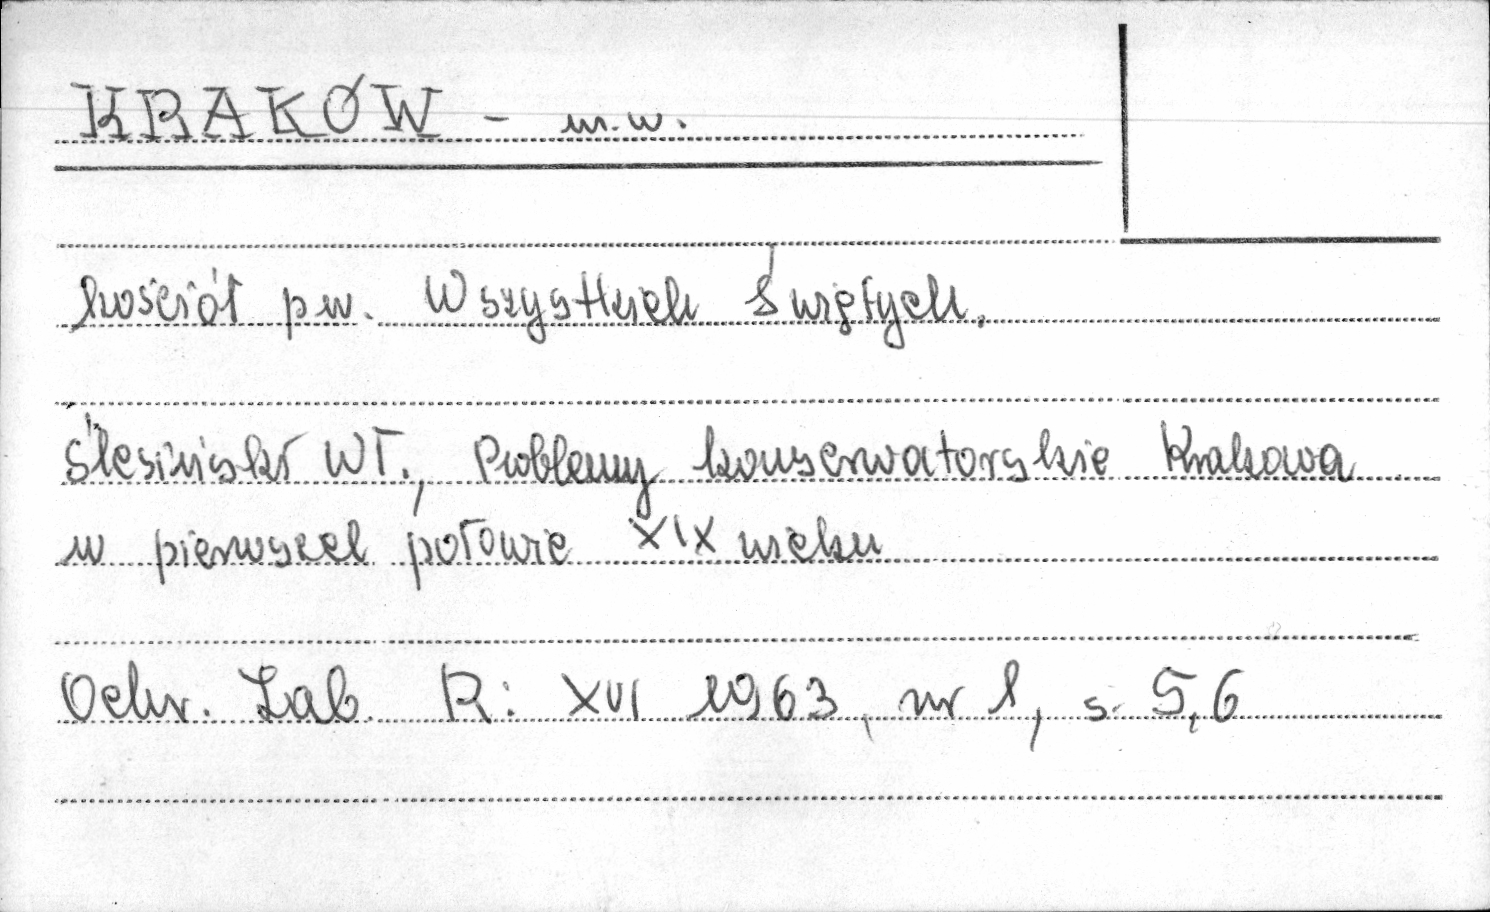 KRAKÓW - m.w.
kościół pw. Wszystkich Świętych.
Ślesiński Wł., Problemy konserwatorskie Krakowa
w pierwszej połowie XIX wieku
Ochr. Zab. R: XVI 1963, nr 1, s. 5,6